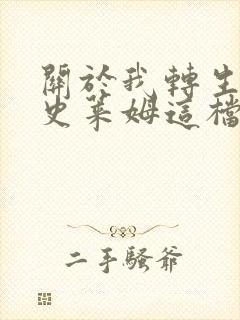 關於我轉生
史萊姆這檔
二手騷爺